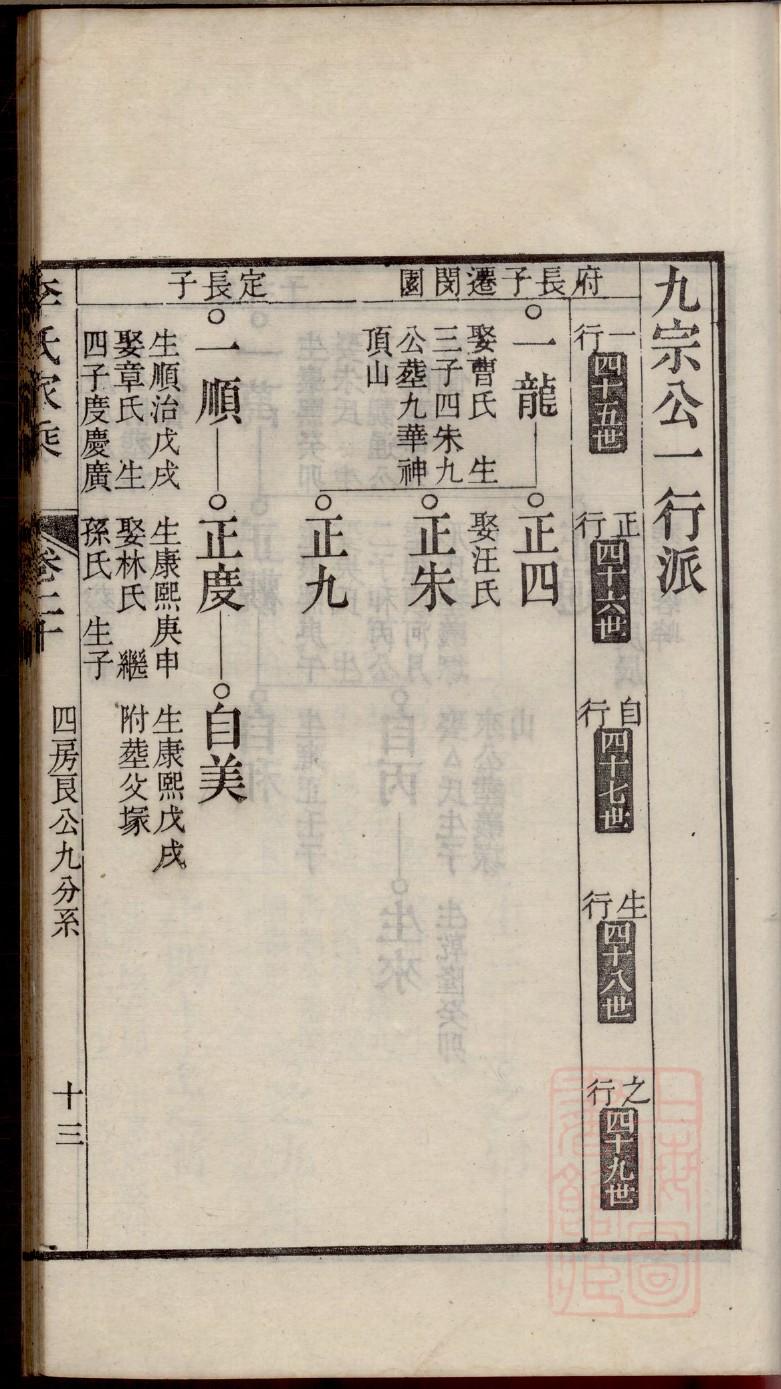 九宗公一行派
一行 四十五世
正行 四十六世
自行 四十七世
生行 四十八世
之行 四十九世
府長子遷閔園
一龍
娶曹氏 生
三子四朱九
公塟九華神
頂山
正四
娶汪氏
正朱
正九
定長子
一順
生順治戊戌
娶章氏 生
四子度慶廣
正度
生康熙庚申
娶林氏 繼
孫氏 生子
自美
生康熙戊戌
附塟父塚
李氏家乘
卷二十
四房良公九分系
十三